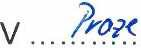 V Proze